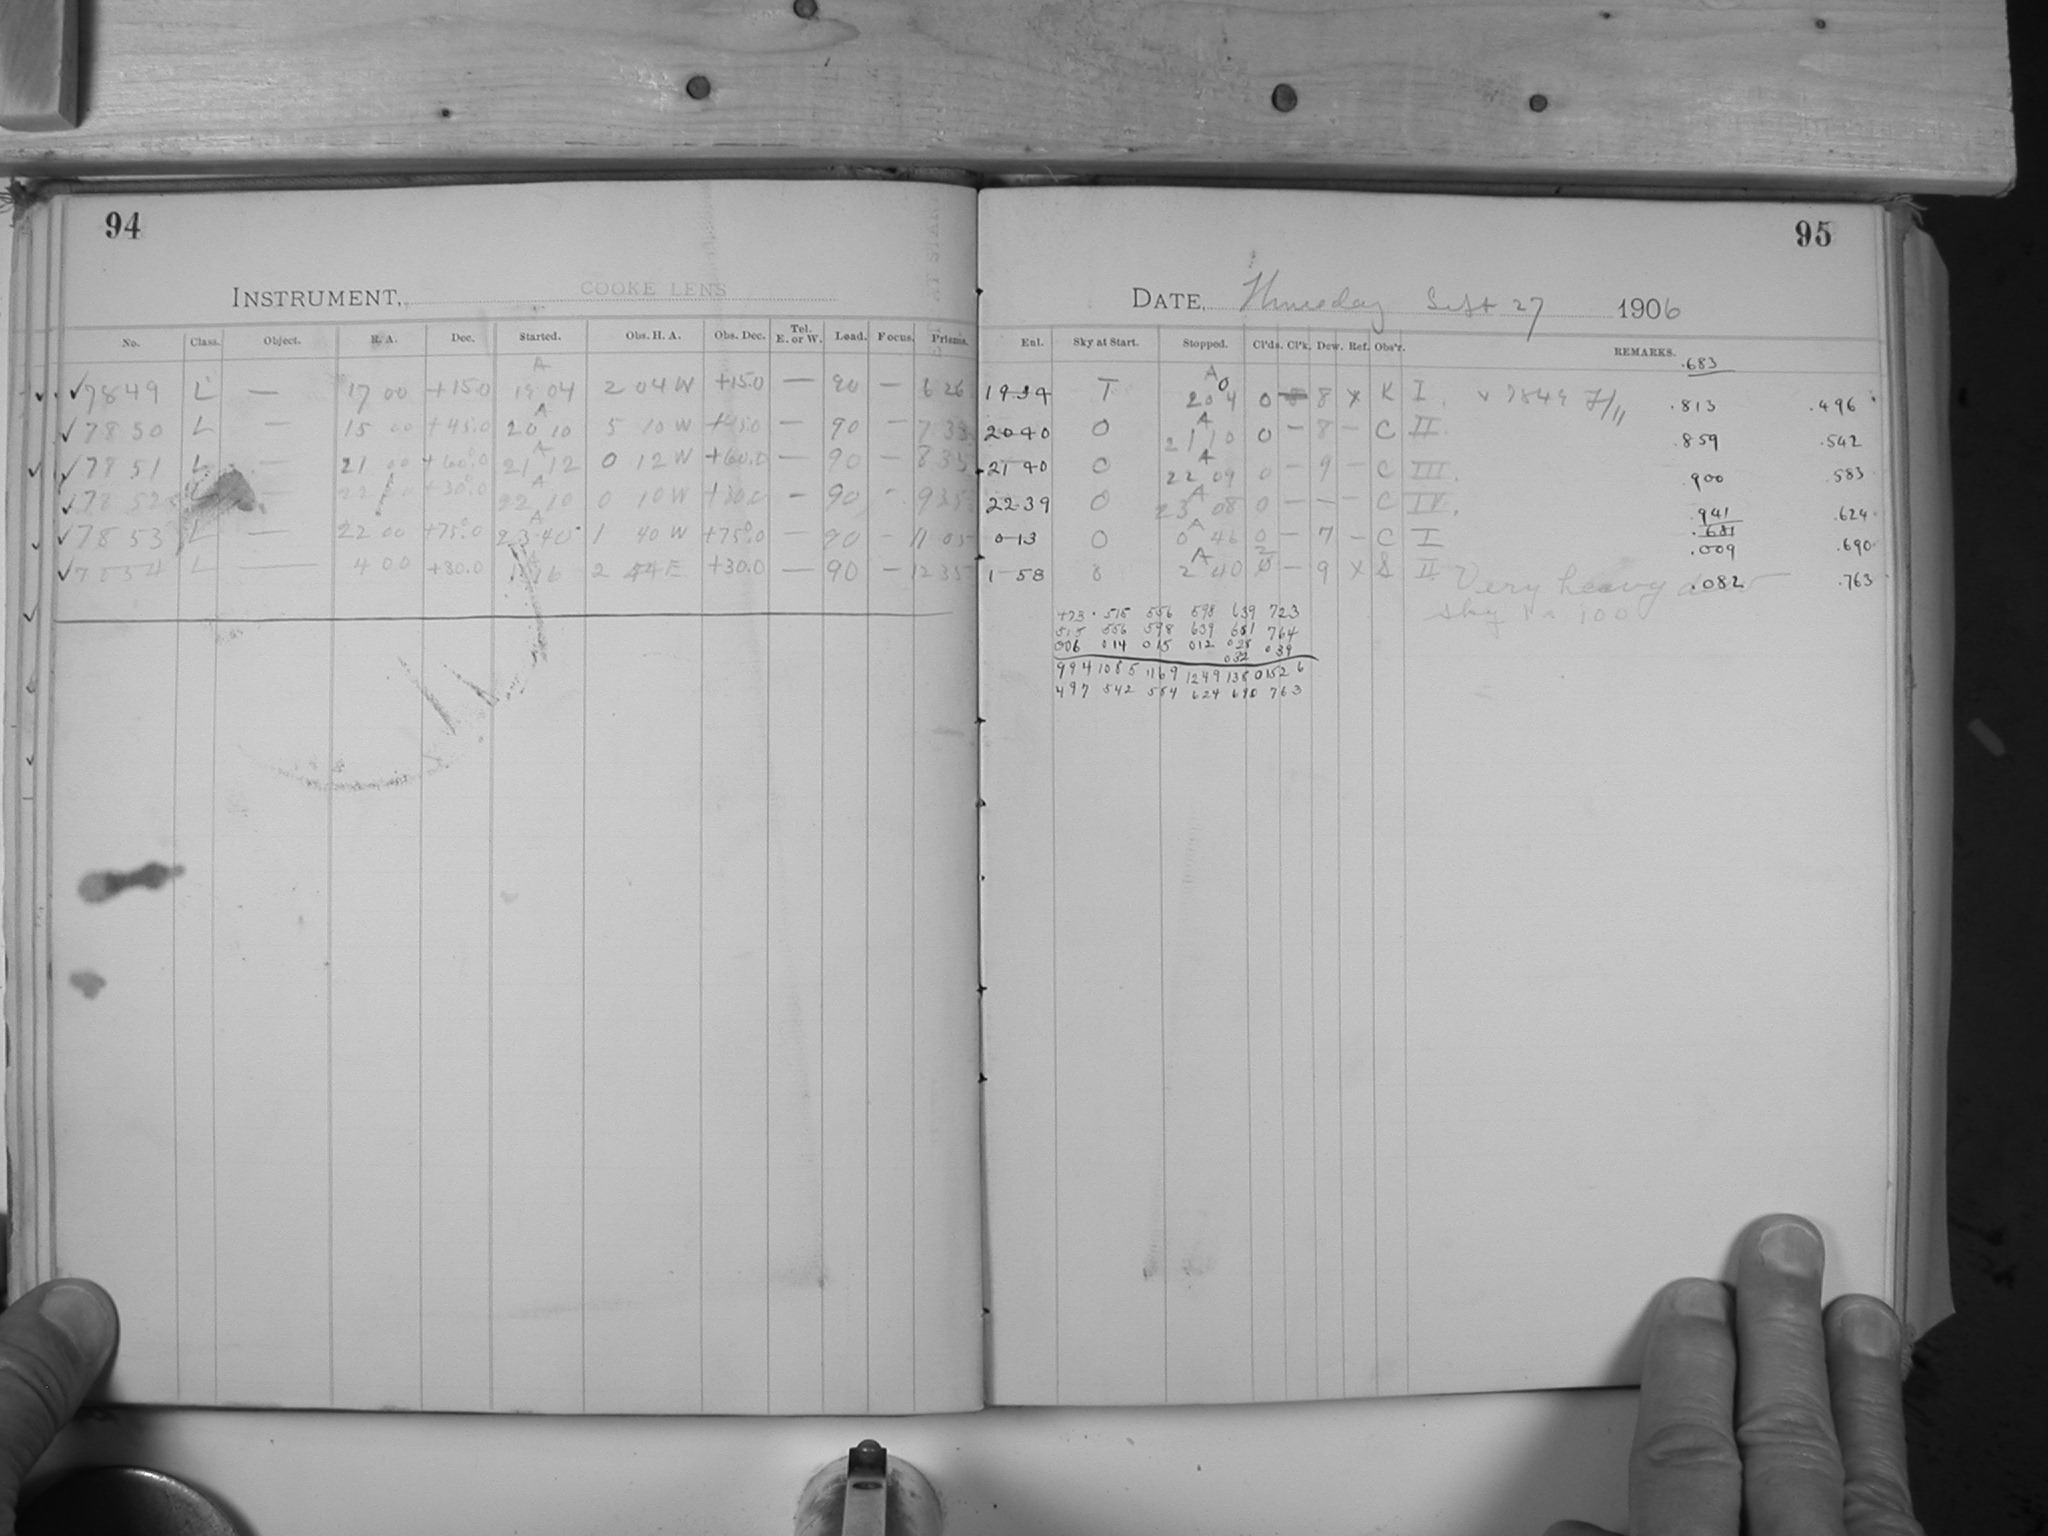 94
INSTRUMENT, COOKE LENS
No. Class. Object. R. A. Dec. Started. Obs. H. A. Obs. Dec. Tel. E. or W. Load. Focus. Prisms.
✓7849 L — 17 00 +15.0 A 19 04 2 04 W +15.0 — 90 — 6 26
✓7850 L — 15 00 +45.0 A 20 10 5 10 W +45.0 — 90 — 7 33
✓7851 L — 21 00 +60.0 A 21 12 0 12 W +60.0 — 90 — 8 35
✓7852 L — 22 00 +30.0 A 22 10 0 10 W +30.0 — 90 - 9 35
✓7853 L — 22 00 +75.0 A 23 40 1 40 W +75.0 — 90 - 11 05
✓7854 L — 4 00 +30.0 A 1 16 2 44 E +30.0 — 90 — 12 35
95
DATE, Thursday Sept 27 1906
Ent. Sky at Start. Stopped. Cl'ds. Cl'k. Dew. Ref. Obs'r. REMARKS.
.683
19-34 T A 20 4 0 8 x K I x 7849 F/11 .813 .496
20-40 0 A 21 10 0 — 8 — C II .859 .542
21 40 0 A 22 09 0 - 9 - C III. .900 .583
22-39 0 A 23 08 0 — — - C IV. .941 .624
.681
0-13 0 A 0 46 0 - 7 - C I .009 .690
1-58 8 A 2 40 2 — 9 x S II Very heavy dew .082 .763
sky
473 515 556 598 639 723
515 556 598 639 681 764
006 014 015 012 028 039
032
994 1085 1169 1249 1380 1526
497 542 584 624 690 763